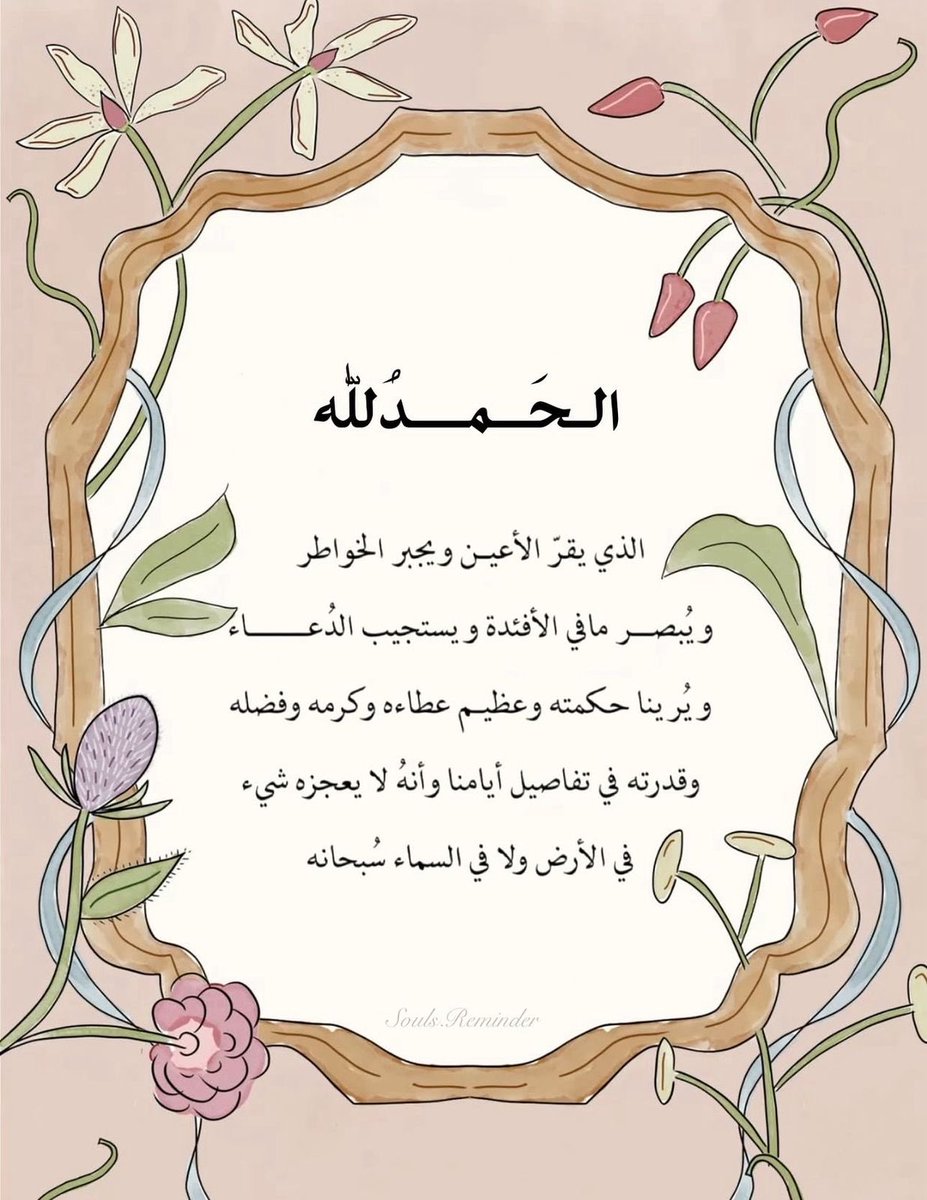 الـحَـــمـــــدُلله
الذي يقرّ الأعيـن ويجبر الخواطر
ويُبصـــر مافي الأفئدة ويستجيب الدُعـــــــاء
ويُرينا حكمته وعظيـم عطاءه وكرمه وفضله
وقدرته في تفاصيل أيامنا وأنهُ لا يعجزه شيء
في الأرض ولا في السماء سُبحانه
Souls.Reminder